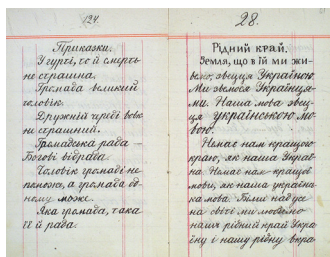 124.
Приказки.
У гурті, то й смерть
не страшна.
Громада великий
чоловік.
Дружній череді вовк
не страшний.
Громадська рада —
Богові відрада.
Чоловік громаді не
поможе, а громада од-
ному може.
Яка громада, така
її й рада.
28.
Рідний край.
Земля, що в їй ми жи-
вемо, звецця Україною.
Ми звемося Українця-
ми. Наша мова звец-
ця українською мо-
вою.
Немає нам кращого
краю, як наша Украї-
на. Немає нам кращої
мови, як наша українсь-
ка мова. Більш над усе
на світі ми любимо
наш рідний край Украї-
ну і нашу рідну вкра-